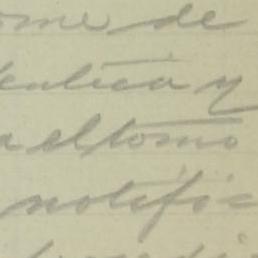 ome de
entica y
a el tomo
notific